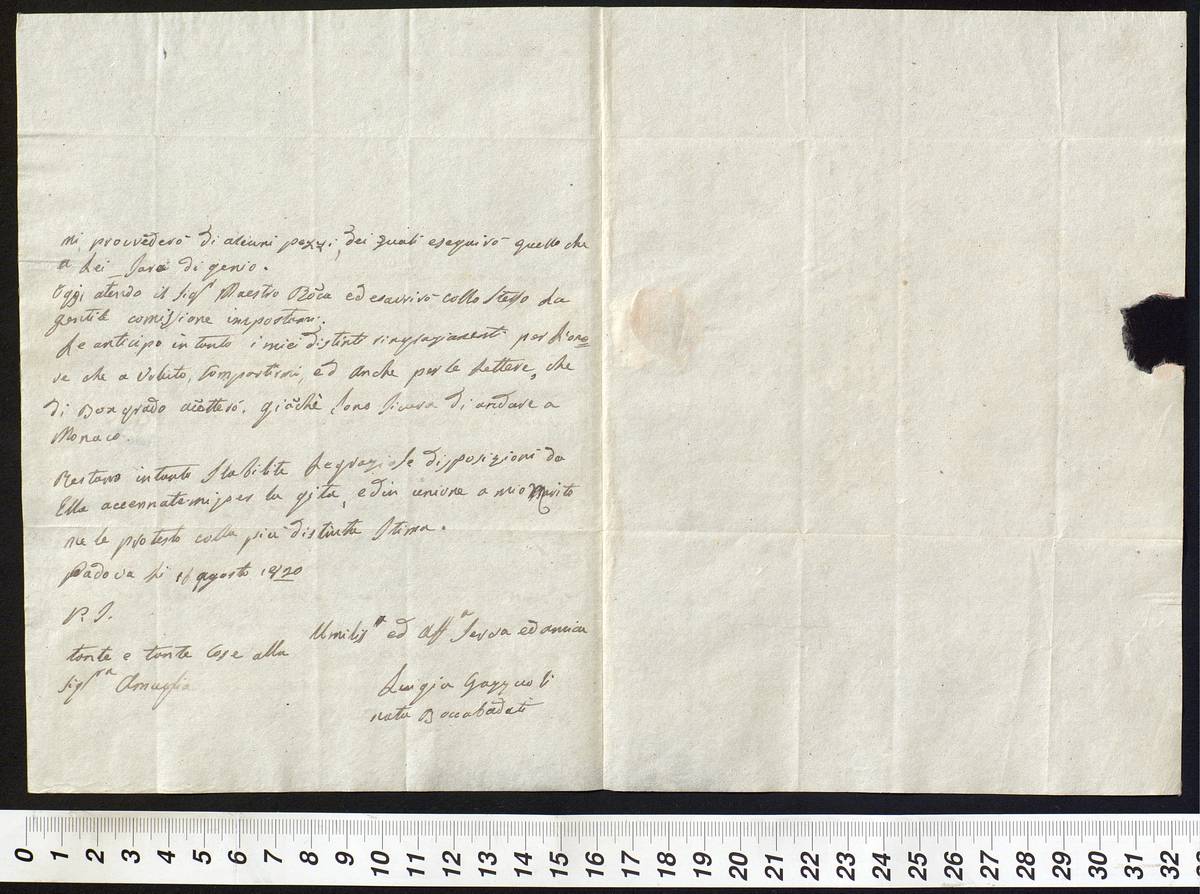 mi provvederò di alcuni pezzi, dei quali eseguirò quello che
a Lei Sarà di genio.
Oggi atendo il Sigr Maestro Boca ed esaurirò collo Stesso La
gentile comissione impostami.
Le anticipo in tanto i miei distinti ringraziamenti per L'ono=
re che a voluto, Compartirmi, ed anche per le Lettere, che
di Bon grado acetterò. giachè Sono Sicura di andare a
Monaco.
Restano in tanto Stabilite Le grazio Se disposizioni da
Ella accennatemi per la gita, ed in unione a mio Marito
me le protesto colla più distinta Stima.
Padova Li 16 agosto 1820
P. S.
Umilisa ed Affa Serva ed amica
tante e tante Cose alla
Sigra
Luigia Gazzuoli
nata Boccabadati
0 1 2 3 4 5 6 7 8 9 10 11 12 13 14 15 16 17 18 19 20 21 22 23 24 25 26 27 28 29 30 31 32